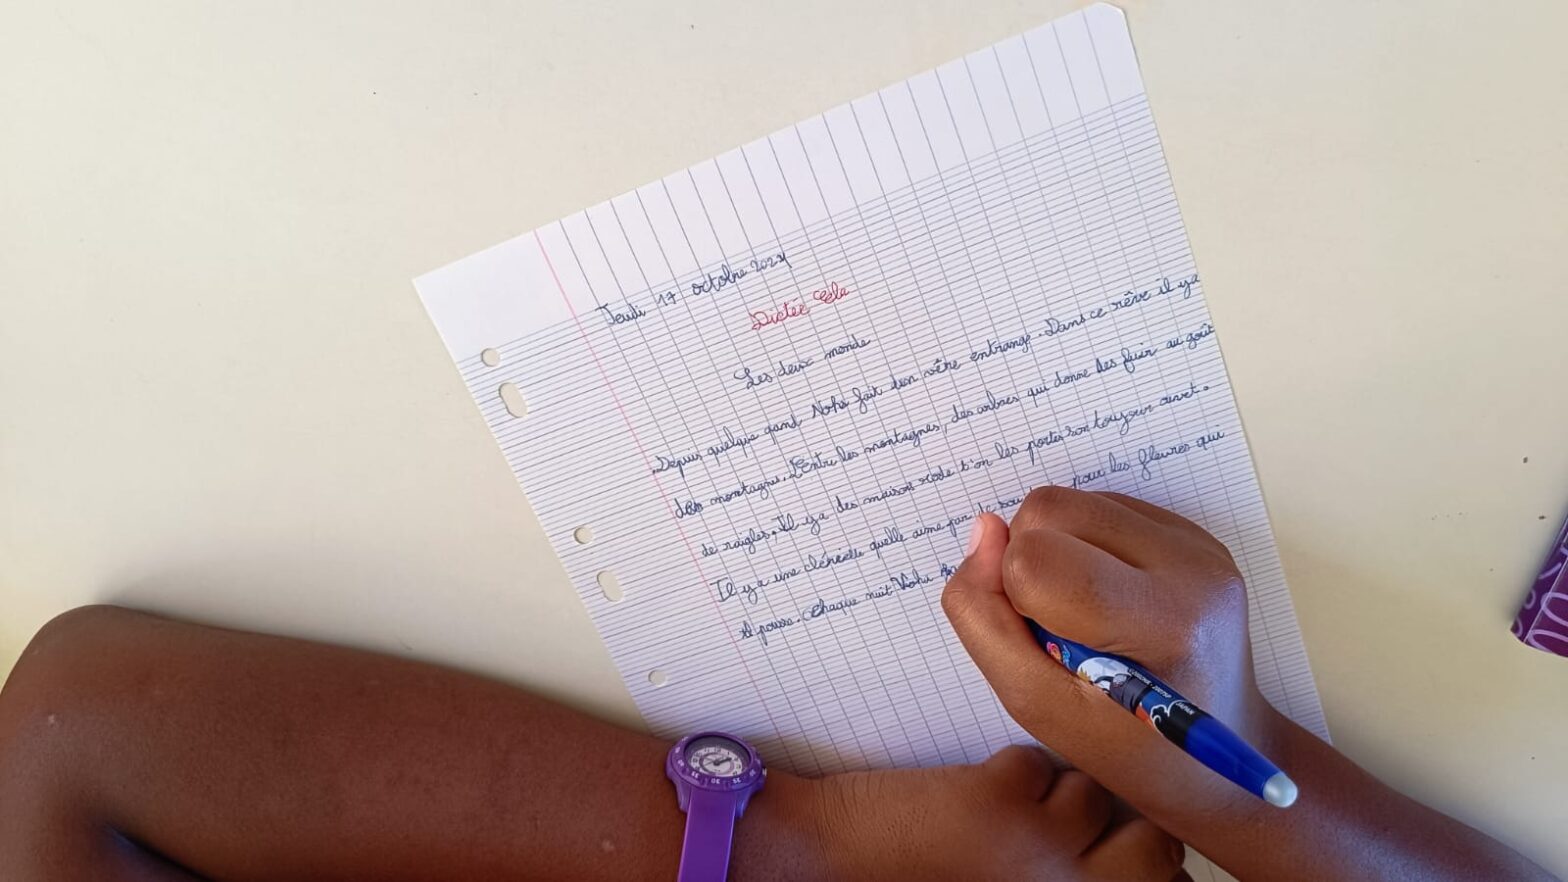 Jeudi 17 octobre 2024
Dictée Ela
Les deux monde
Depuis quelque gand Noha fait un entrange. Dans ce rêve il ya
des montagne. Entre les montagnes, des arbres qui donne des fuir au goût
de raigles. Il ya des maison rose les portes son toujour ouvet.
Il ya une quelle aime par pour les fleures qui
pousse. Chaque nuit Noha
JAPAN